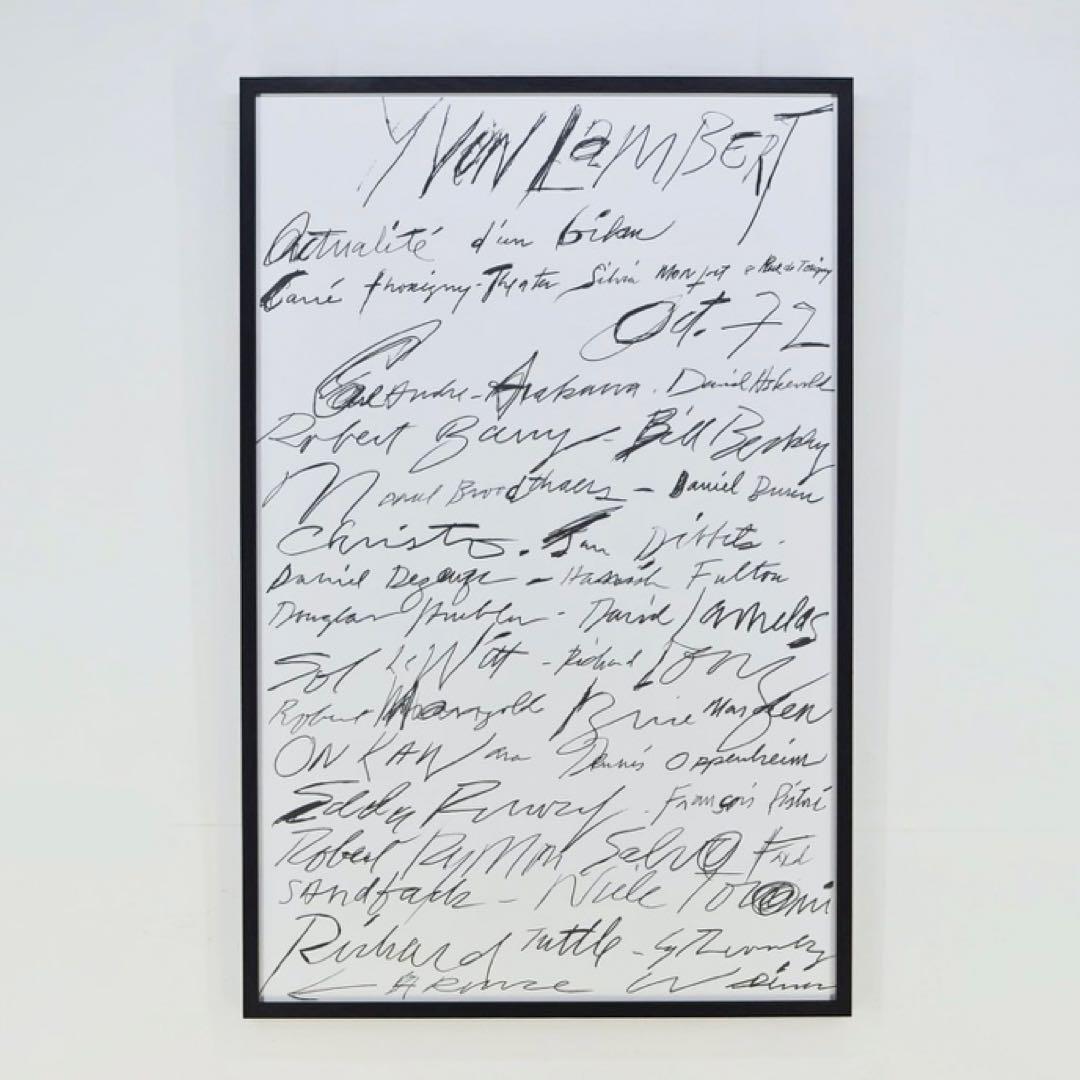 YVON LAMBERT
Actualité d'un bilan
Carré Thorigny-Theater Silvia Monfort
Oct. 72
Carl Andre - Arakawa. David Askevold
Robert Barry - Bill Beckley
Marcel Broodthaers - Daniel Buren
Christo. Jan Dibbets.
Daniel Dezeuze - Hamish Fulton
Douglas Huebler - David Lamelas
Sol LeWitt - Richard Long
Robert Mangold Brice Marden
ON KAWara Dennis Oppenheim
Edda Renouf. François Ristori
Robert Ryman Salvo Fred
SANdback - Niele Toroni
Richard Tuttle - Cy Twombly
LARence Weiner